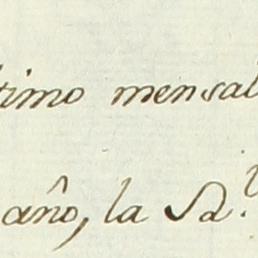 timo mensal
año, la